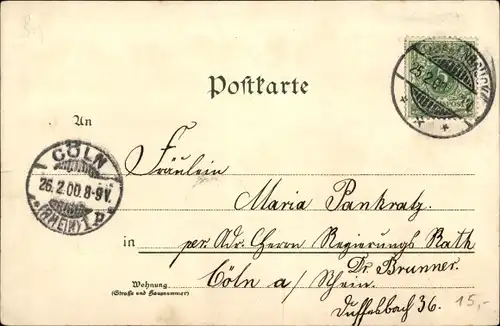 Postkarte
An
CÖLN
26.2.00.8-9V.
(RHEIN) 1 P
25.2.00
Fräulein
Maria Pankratz.
in per. Adr. Herrn Regierungs Rath
Dr. Brunner.
Cöln a/Rhein.
Wohnung
(Straße und Hausnummer)
Duffesbach 36.
15,-